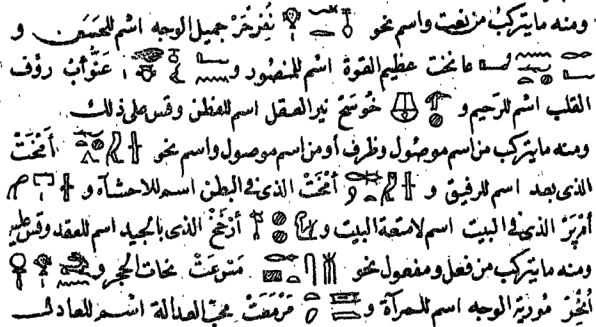 ومنه مايتركب من نعت واسم نحو نُفِرْحَرْ جميل الوجه اسم للحَسَن و
عانخت عظيم القوة اسم للمنصُور و عَنَّوأبُ رؤف
القلب اسم للرَحيم و خُو سَخْ نير العقل اسم للفطن وقس على ذلك
ومنه مايتركب من اسم موصُول وظرف أو من اسم موصول واسم نحو أَمْخَتْ
الذى بعد اسم للرفيق و أَمْخَتْ الذى فى البطن اسم للاحشآء و
أَمْپَرْ الذى فى البيت اسم لامتعة البيت و أَرْخَخْ الذى بالجيد اسم للعقد وقس عليه
ومنه مايتركب من فعل ومفعول نحو نحات الحجر و
مُورية الوجه اسم للمرآة و مَرْمَعَتْ محب العدالة اسم للعادل